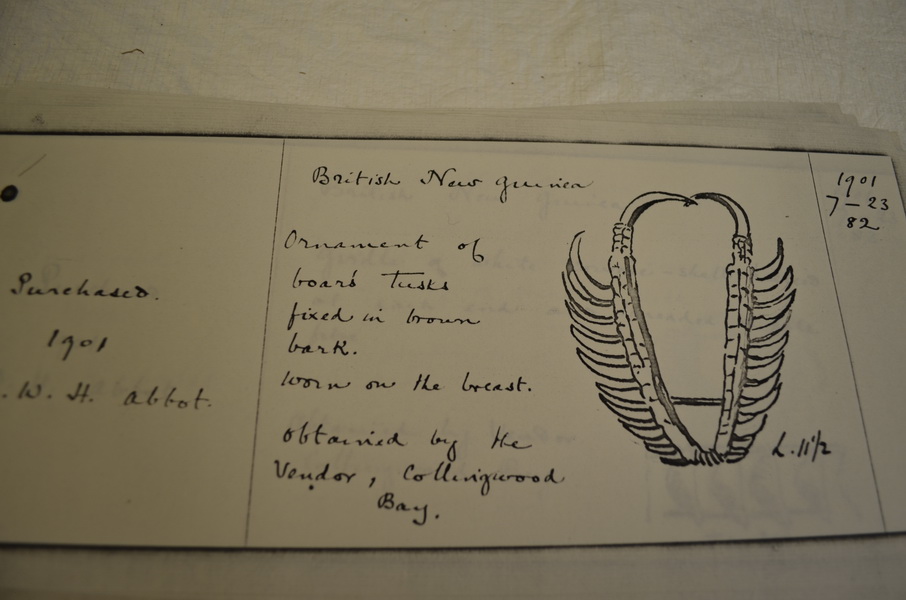 Purchased.
1901
.W. H. Abbot.
British New Guinea
Ornament of
boar's Tusks
fixed in brown
bark.
Worn on the breast.
obtained by the
Vendor, Collingwood
Bay.
L. 11½
1901
7-23
82